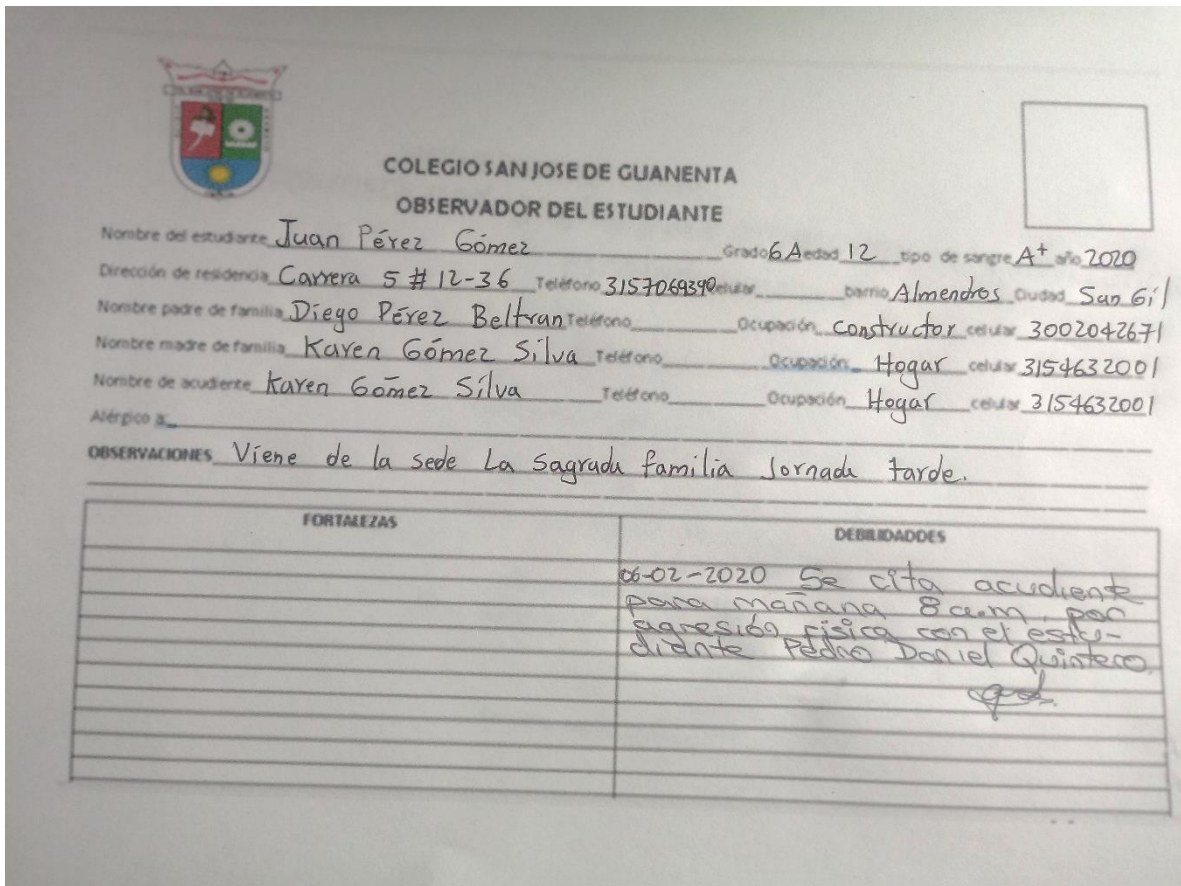 COLEGIO SAN JOSE DE GUANENTA
OBSERVADOR DEL ESTUDIANTE
Nombre del estudiante Juan Pérez Gómez Grado 6A edad 12 tipo de sangre A+ año 2020
Dirección de residencia Carrera 5 # 12-36 Teléfono 3157069390 celular barrio Almendros Ciudad San Gil
Nombre padre de familia Diego Pérez Beltran Teléfono Ocupación Constructor celular 3002042671
Nombre madre de familia Karen Gómez Silva Teléfono Ocupación Hogar celular 3154632001
Nombre de acudiente Karen Gómez Silva Teléfono Ocupación Hogar celular 3154632001
Alérgico a:
OBSERVACIONES Viene de la sede La Sagrada familia Jornada tarde.
FORTALEZAS
DEBILIDADDES
06-02-2020 Se cita acudiente
para mañana 8 a.m. por
agresión física con el estu-
diante Pedro Daniel Quintero.